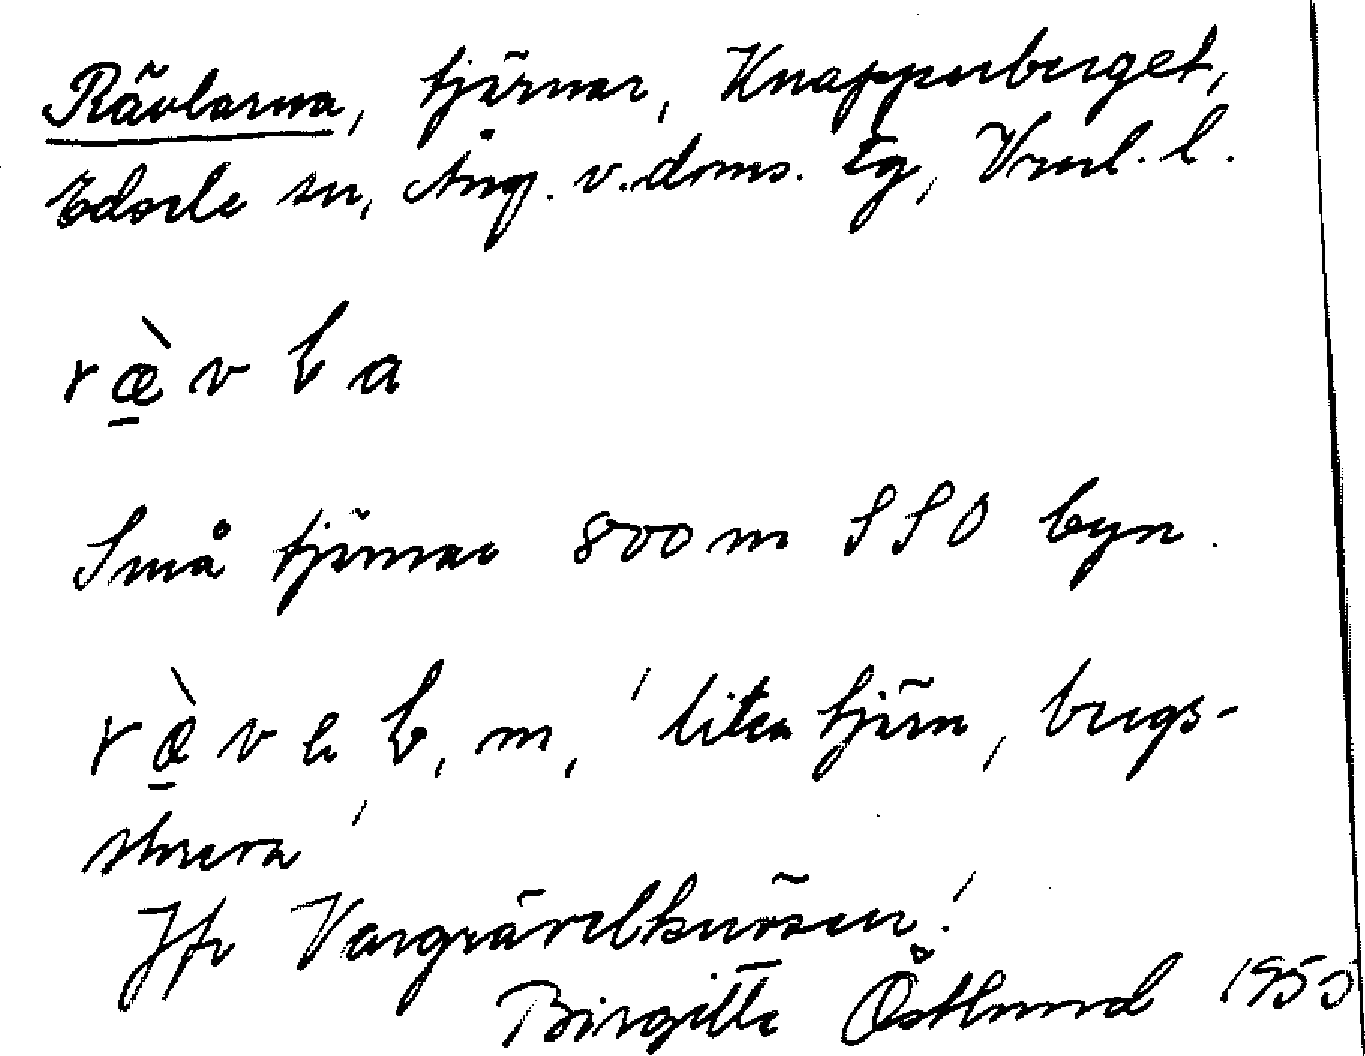 Rävlarna, tjärnar, Knapperberget,
Edsele sn, Ång. v. doms. Tg, Vrnl. l.
ræ̀vƚa
Små tjärnar 800 m SSO byn.
ræ̀veƚ, m, 'liten tjärn,
Jfr Vargrävelknösen!
Birgitta Östlund 1955